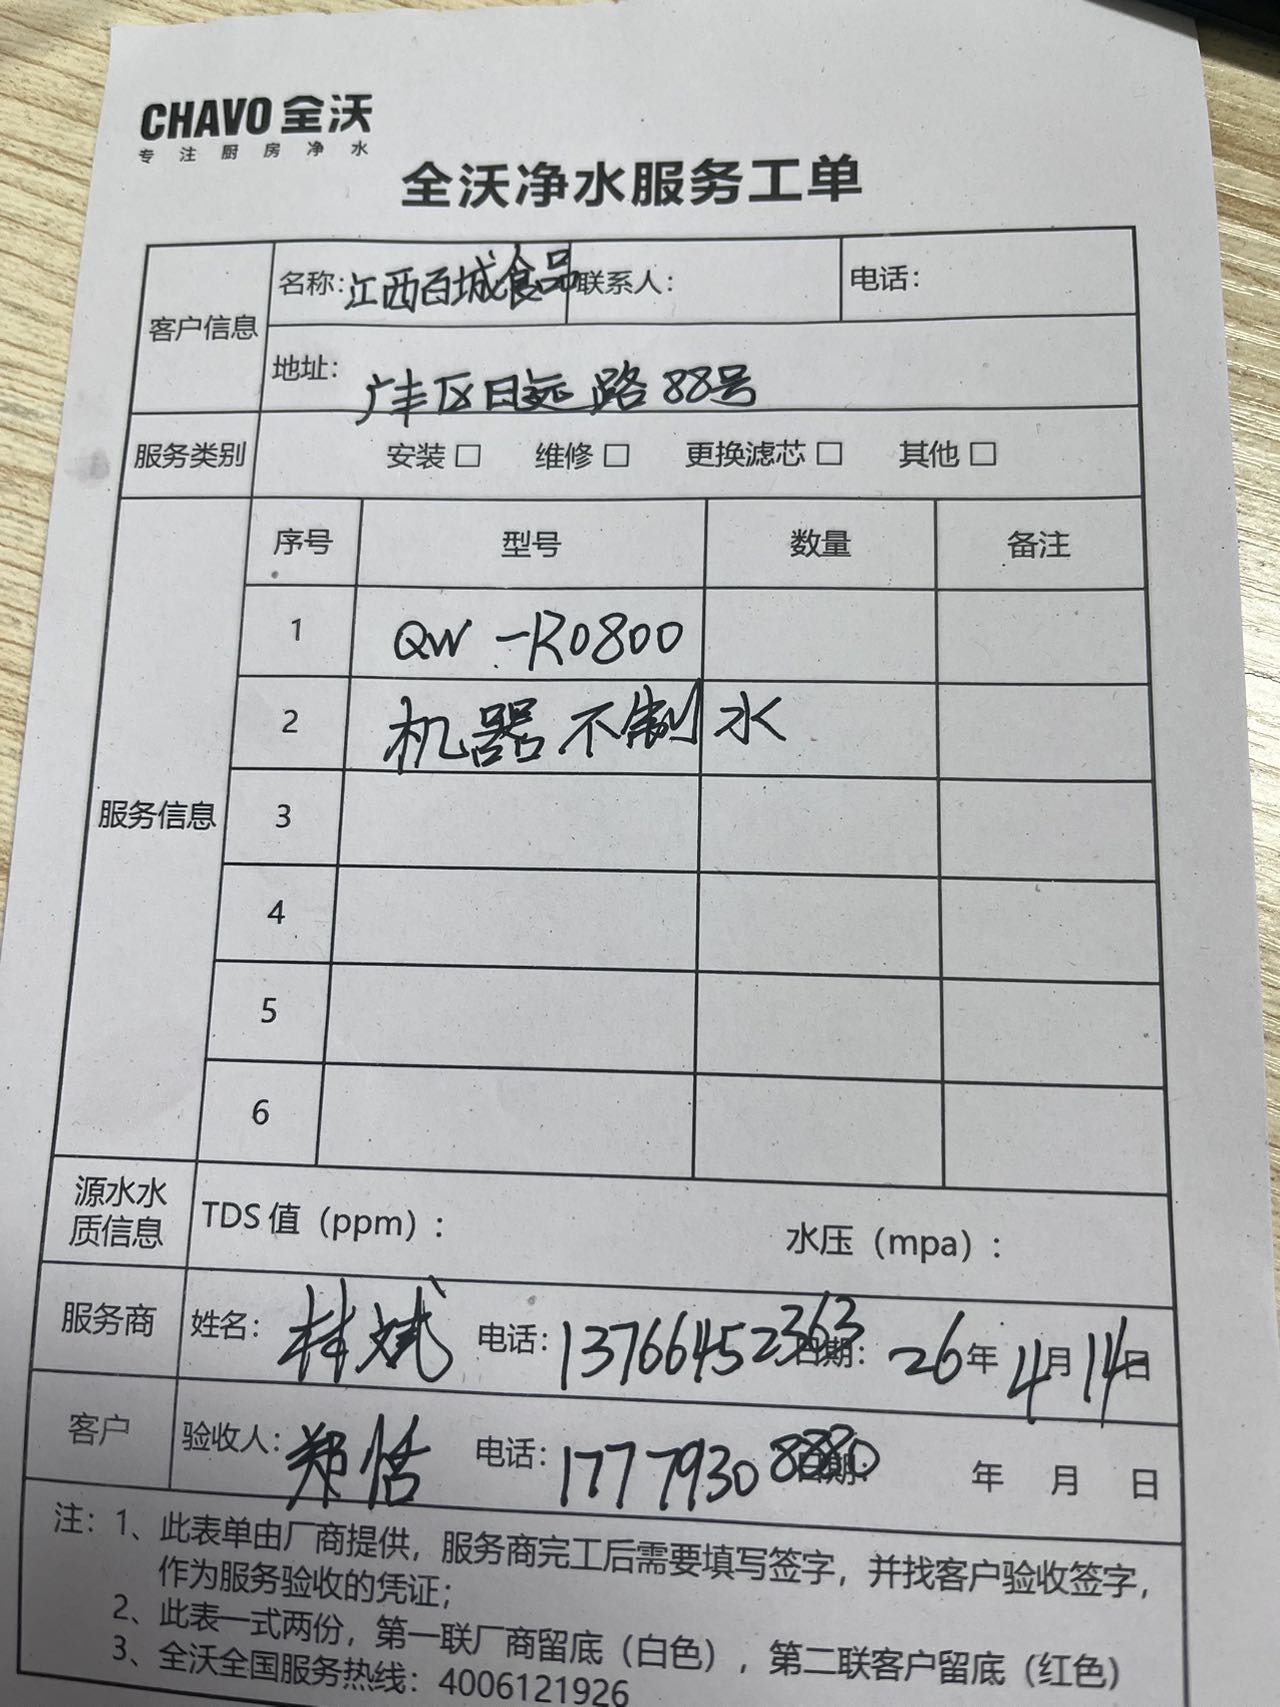 CHAVO 全沃
专注厨房净水
全沃净水服务工单
客户信息 名称：江西百城食品 联系人： 电话：
地址：广丰区日远路88号
服务类别 安装 □ 维修 □ 更换滤芯 □ 其他 □
服务信息 序号 型号 数量 备注
1 QW-RO800
2 机器不制水
3
4
5
6
源水水质信息 TDS 值（ppm）： 水压（mpa）：
服务商 姓名：林斌 电话：13766452363 日期：26年4月14日
客户 验收人：郑恬 电话：17779308880 日期： 年 月 日
注：1、此表单由厂商提供，服务商完工后需要填写签字，并找客户验收签字，
作为服务验收的凭证；
2、此表一式两份，第一联厂商留底（白色），第二联客户留底（红色）
3、全沃全国服务热线：4006121926